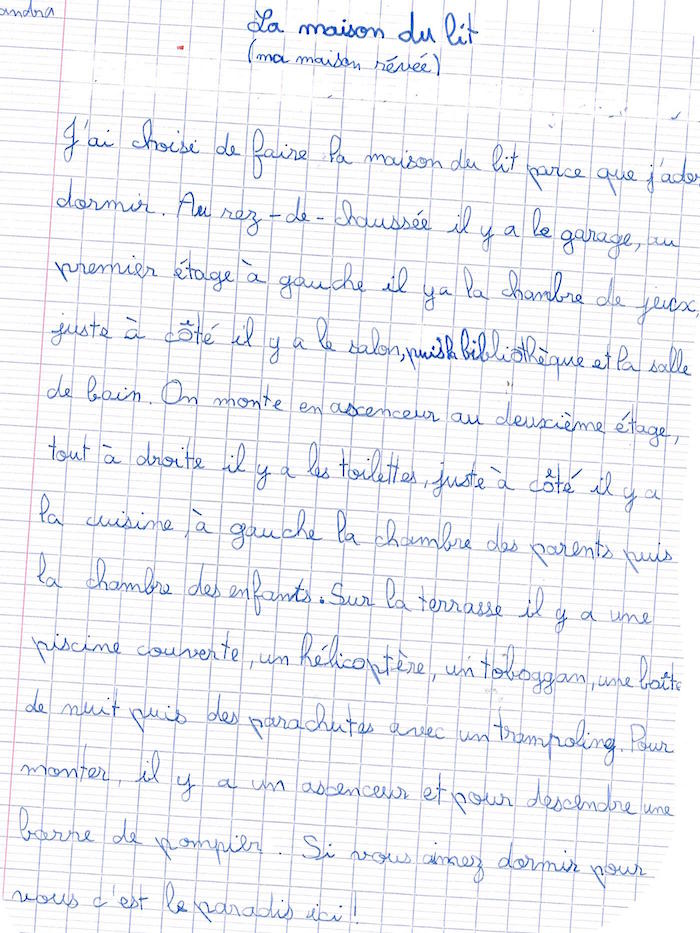 andra
La maison du lit
(ma maison rêvée)
J'ai choisi de faire la maison du lit parce que j'ador
dormir. Au rez-de-chaussée il y a le garage, au
premier étage à gauche il y a la chambre de jeux,
juste à côté il y a le salon, puis la bibliothèque et la salle
de bain. On monte en ascenceur au deuxième étage,
tout à droite il y a les toilettes, juste à côté il y a
la cuisine, à gauche la chambre des parents puis
la chambre des enfants. Sur la terrasse il y a une
piscine couverte, un hélicoptère, un toboggan, une boîte
de nuit puis des parachutes avec un trampoling. Pour
monter, il y a un ascenceur et pour descendre une
barre de pompier. Si vous aimez dormir pour
vous c'est le paradis ici!